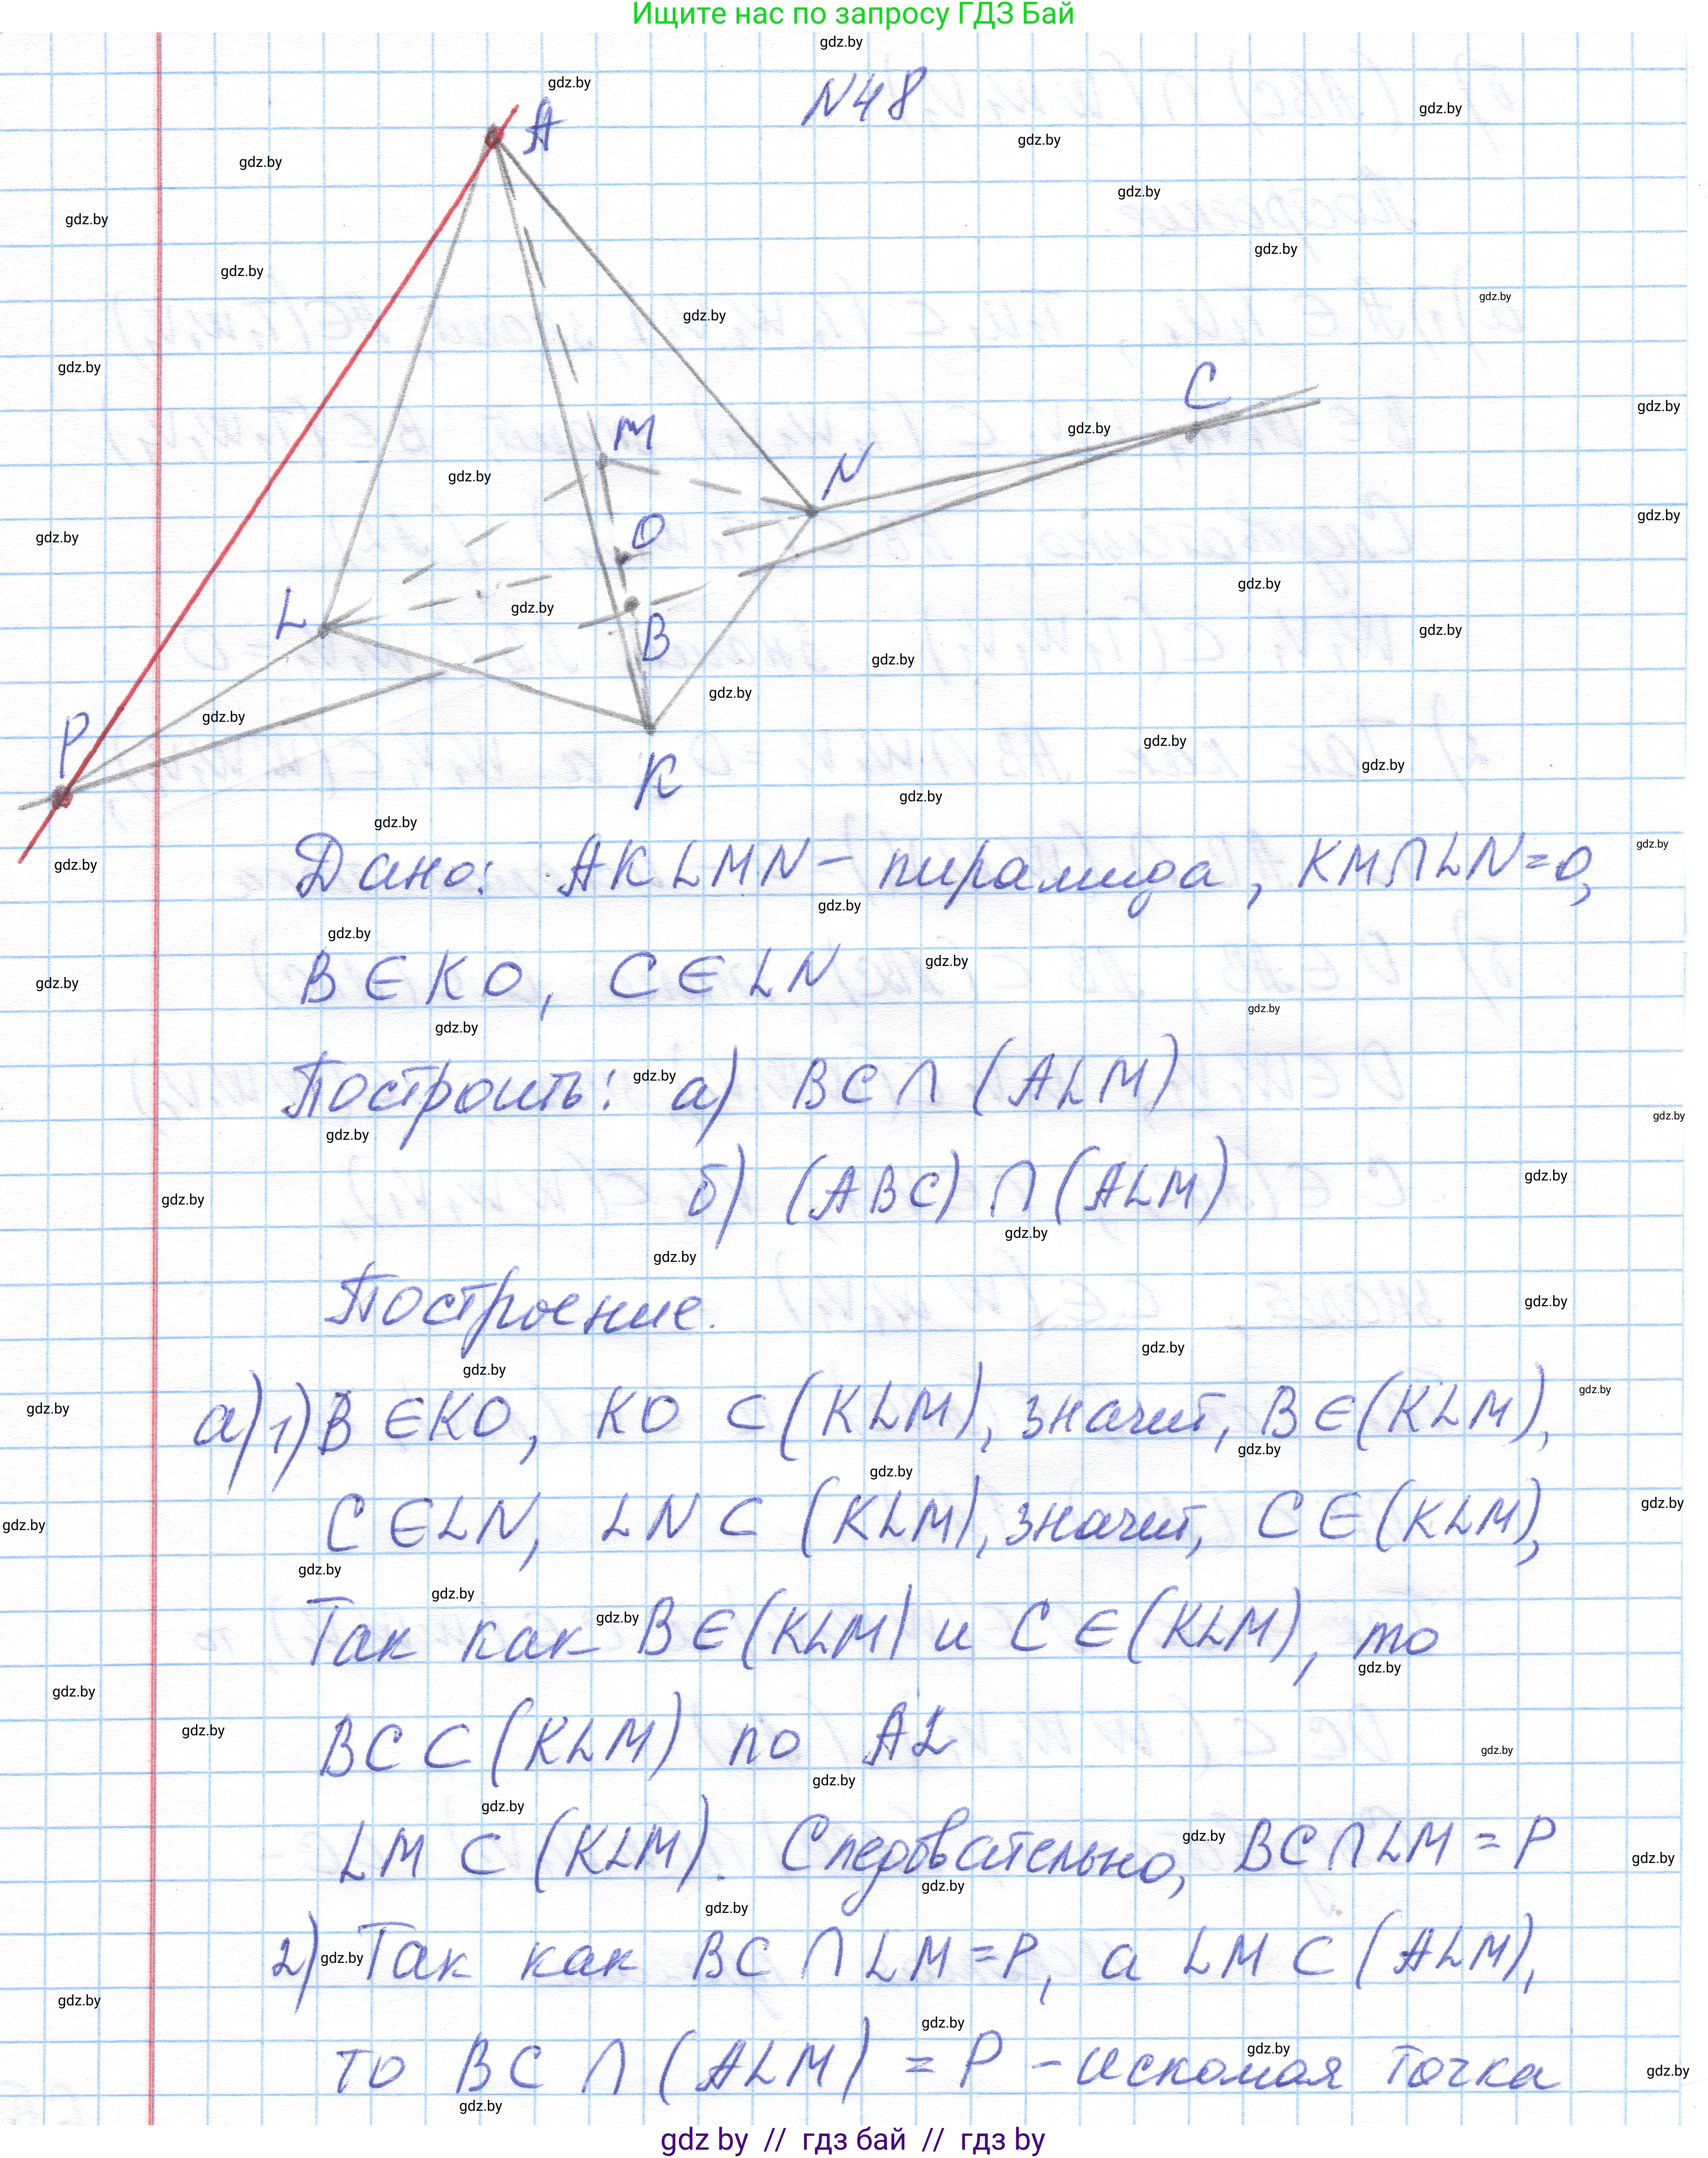 Ищите нас по запросу ГДЗ Бай
N48
A
M
C
N
O
L
B
P
K
Дано: AKLMN – пирамида, KM∩LN=O,
B∈KO, C∈LN
Построить: а) BC∩(ALM)
б) (ABC)∩(ALM)
Построение.
а) 1) B∈KO, KO⊂(KLM), значит, B∈(KLM),
C∈LN, LN⊂(KLM), значит, C∈(KLM),
Так как B∈(KLM) и C∈(KLM), то
BC⊂(KLM) по A2
LM⊂(KLM). Следовательно, BC∩LM=P
2) Так как BC∩LM=P, а LM⊂(ALM),
то BC∩(ALM)=P – искомая точка
gdz by // гдз бай // гдз by